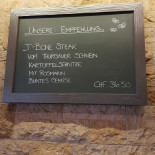 UNSERE EMPFEHLUNG
T-BONE STEAK
VOM THURGAUER SCHWEIN
KARTOFFELSPALTEN
MIT ROSMARIN
BUNTES GEMÜSE
CHF 36.50